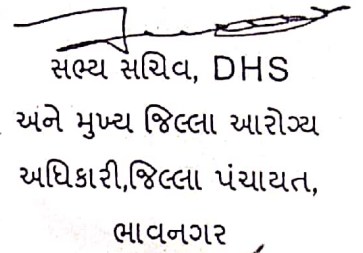 સભ્ય સચિવ, DHS
અને મુખ્ય જિલ્લા આરોગ્ય
અધિકારી,જિલ્લા પંચાયત,
ભાવનગર